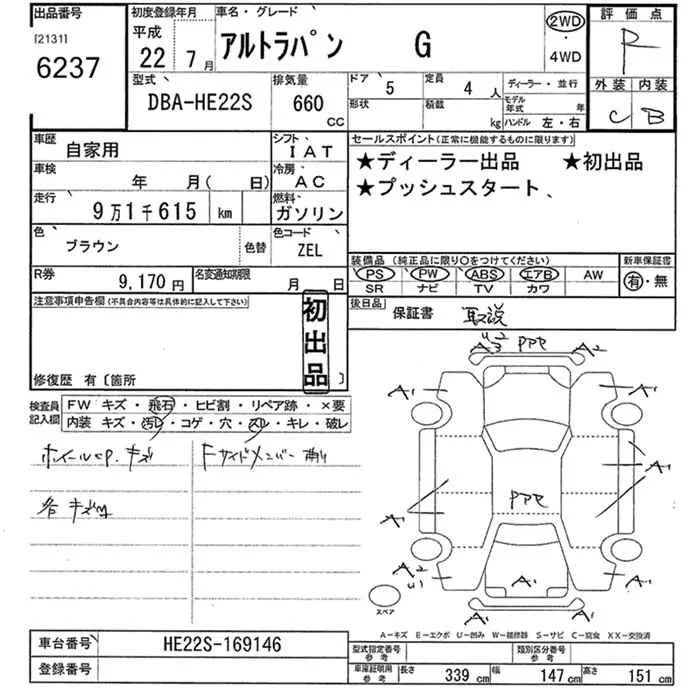 出品番号
[2131]
6237
初度登録年月
平成
22 7月
車名・グレード
アルトラパン G
2WD
・
4WD
評価点
R
外装 内装
C B
型式
DBA-HE22S
排気量
660
CC
ドア 5
定員 4 人
ディーラー・並行
形状
積載 kg
モデル年式 年
ハンドル 左・右
車歴
自家用
シフト
IAT
車検
年 月( 日)
冷房
AC
走行
9万1千615 km
燃料
ガソリン
色
ブラウン
色替
色コード
ZEL
R券
9,170円
名変通知期限
月 日
セールスポイント(正常に機能するものに限ります)
★ディーラー出品 ★初出品
★プッシュスタート、
装備品(純正品に限り○をつけてください)
PS PW ABS エアB AW
SR ナビ TV カワ
新車保証書
有・無
後日品
保証書 取説
注意事項申告欄(不具合内容等は具体的に記入して下さい)
初出品
修復歴 有〔箇所 〕
検査員記入欄
FW キズ・飛石・ヒビ割・リペア跡・×要
内装 キズ・汚レ・コゲ・穴・スレ・キレ・破レ
キズ
Fサイドメンバー
各 キズ
A2
PPP
A2
A1
A1
A1
A1
A1
PPP
A1
A2
A1
A1
A1
A1
スペア
A-キズ E-エクボ U-凹み W-補修跡 S-サビ C-腐食 XX-交換済
車台番号
HE22S-169146
登録番号
型式指定番号
参考
類別区分番号
参考
車庫証明用
参考
長さ 339 cm
幅 147 cm
高さ 151 cm